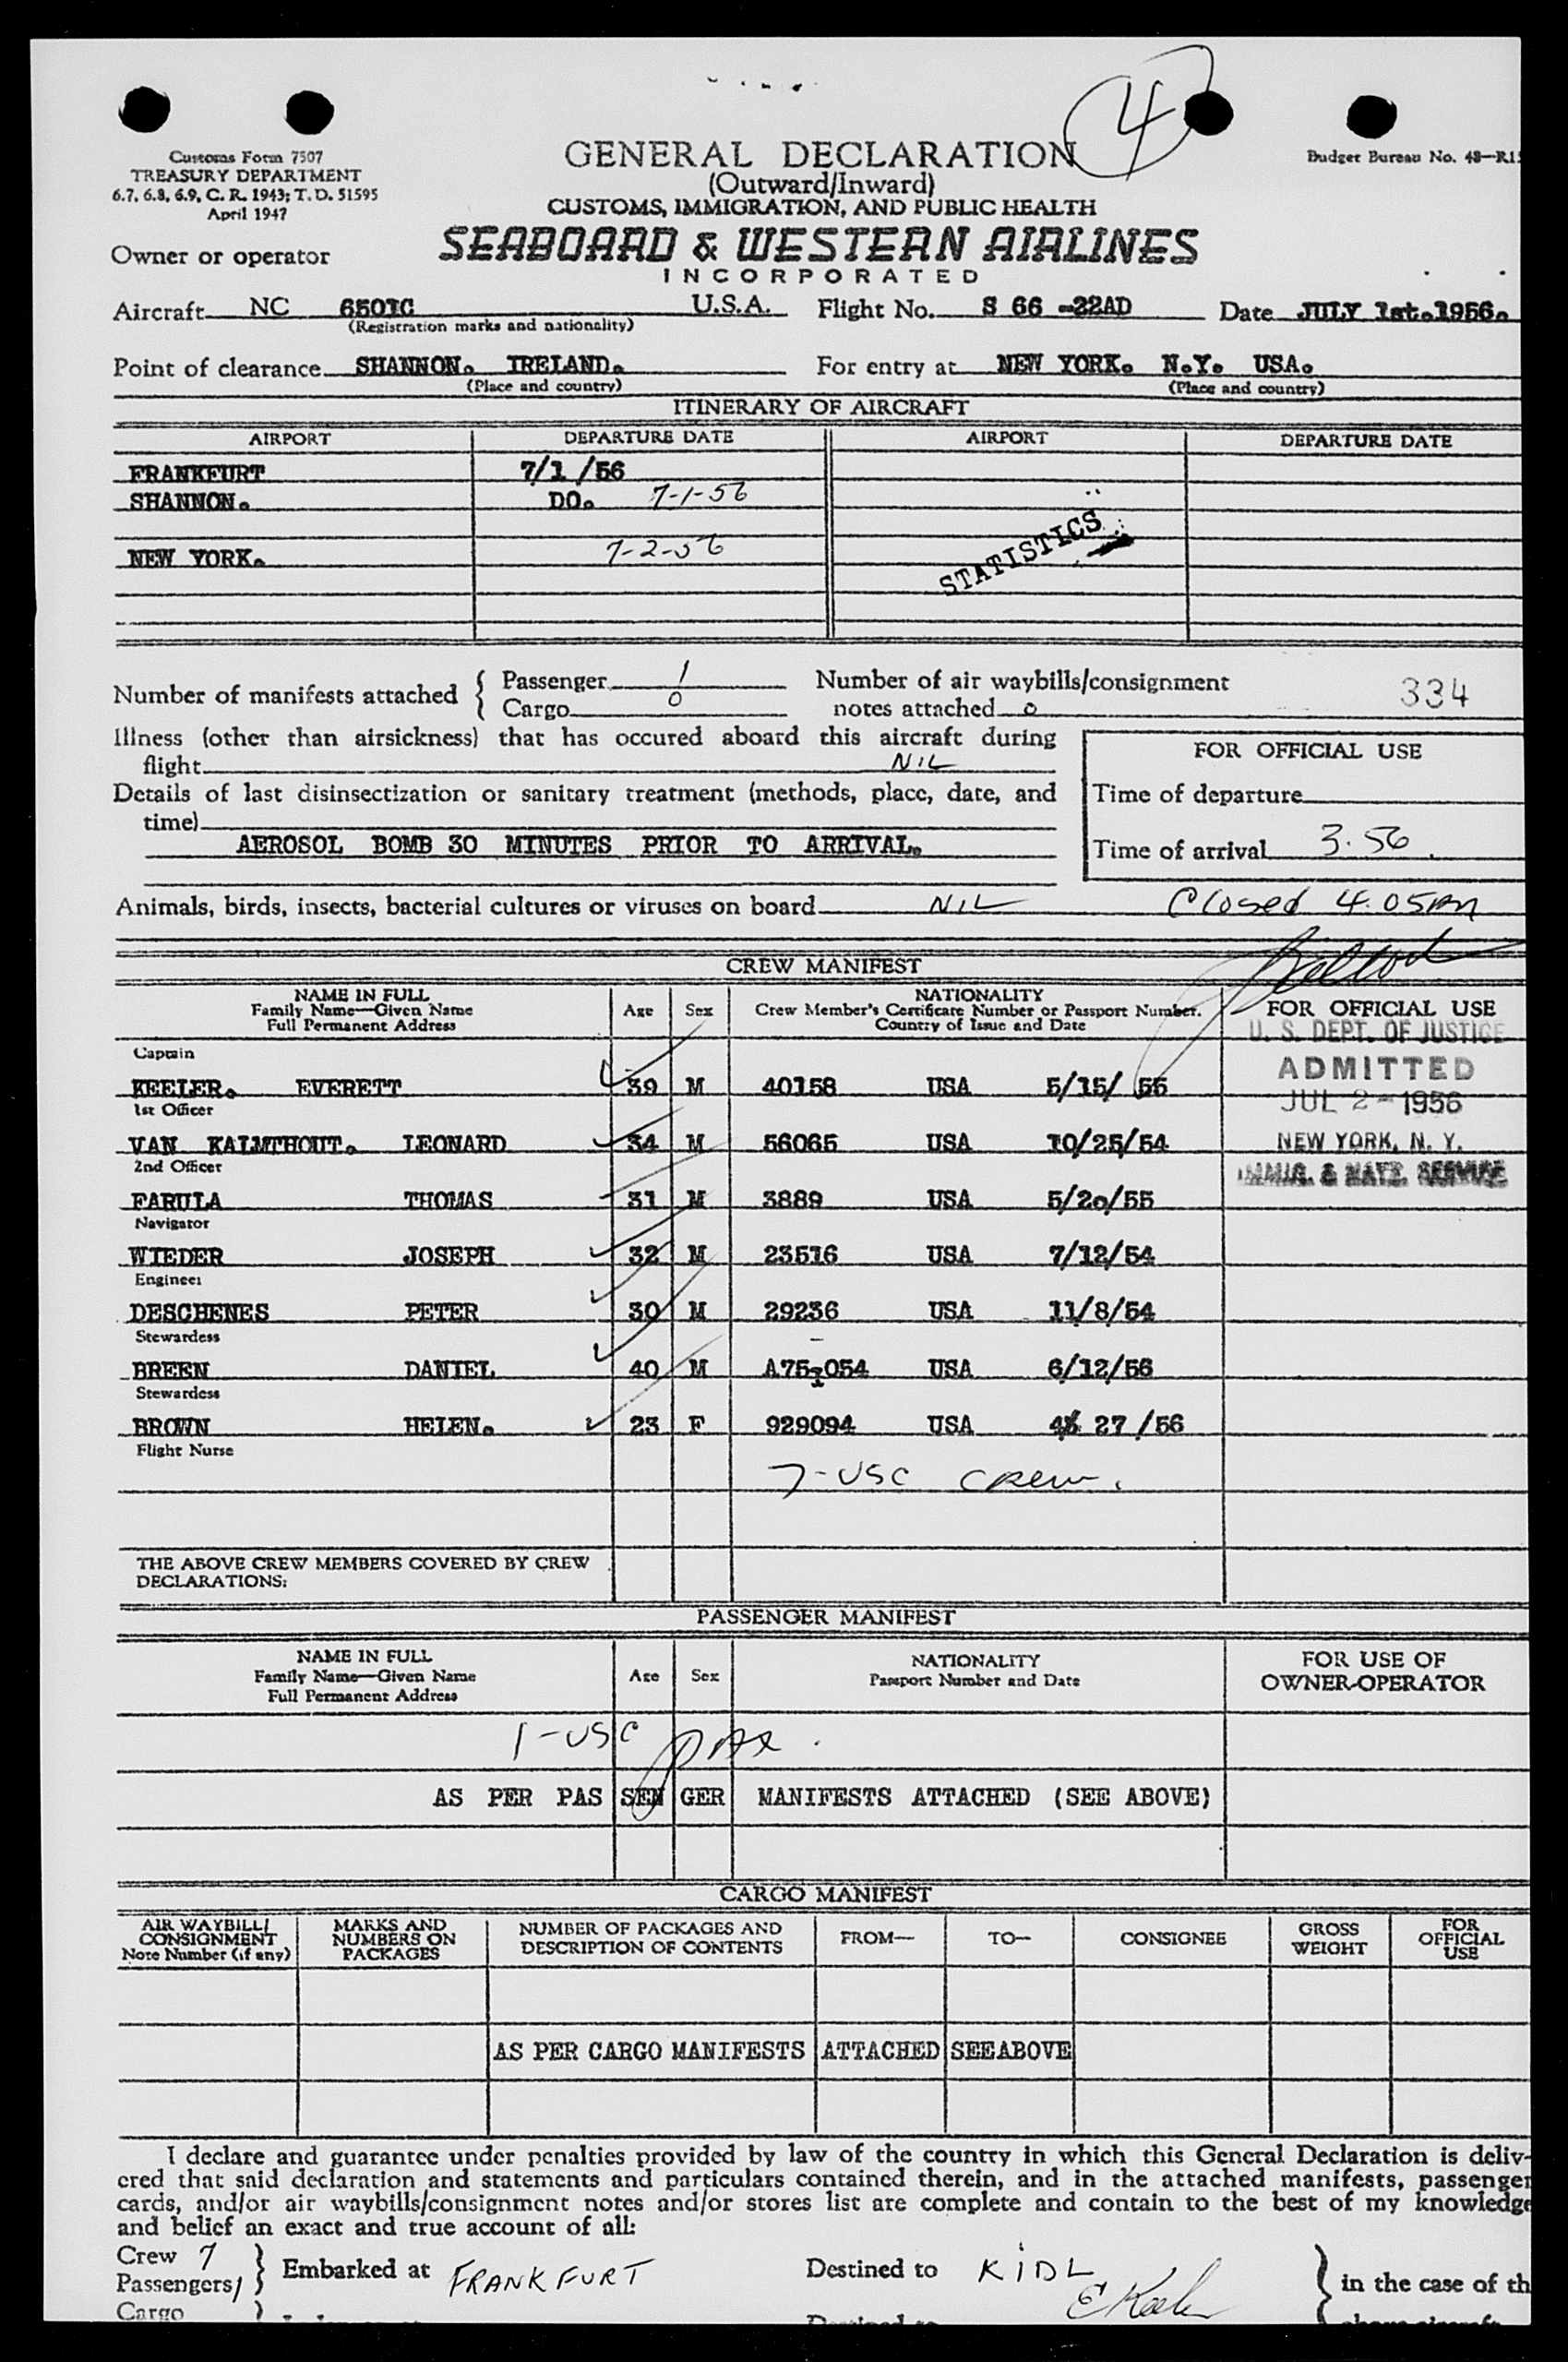 4
Customs Form 7507
TREASURY DEPARTMENT
6.7, 6.8, 6.9, C. R. 1943; T. D. 51595
April 1947
GENERAL DECLARATION
(Outward/Inward)
CUSTOMS, IMMIGRATION, AND PUBLIC HEALTH
Budget Bureau No. 48—R1
Owner or operator SEABOARD & WESTERN AIRLINES
INCORPORATED
Aircraft NC 6501C U.S.A. Flight No. S 66 -22AD Date JULY 1st.1956.
(Registration marks and nationality)
Point of clearance SHANNON. IRELAND. For entry at NEW YORK. N.Y. USA.
(Place and country) (Place and country)
ITINERARY OF AIRCRAFT
AIRPORT DEPARTURE DATE AIRPORT DEPARTURE DATE
FRANKFURT 7/1 /56
SHANNON. DO. 7-1-56
STATISTICS
NEW YORK. 7-2-56
Number of manifests attached { Passenger 1 Number of air waybills/consignment 334
Cargo 0 notes attached 0
Illness (other than airsickness) that has occured aboard this aircraft during
flight NIL
FOR OFFICIAL USE
Details of last disinsectization or sanitary treatment (methods, place, date, and
time)
Time of departure
AEROSOL BOMB 30 MINUTES PRIOR TO ARRIVAL.
Time of arrival 3.56
Animals, birds, insects, bacterial cultures or viruses on board NIL Closed 4.05AM
CREW MANIFEST
NAME IN FULL
Family Name—Given Name
Full Permanent Address
Age Sex
NATIONALITY
Crew Member's Certificate Number or Passport Number.
Country of Issue and Date
FOR OFFICIAL USE
U. S. DEPT. OF JUSTICE
ADMITTED
JUL 2 - 1956
NEW YORK, N. Y.
IMMIG. & NATZ. SERVICE
Captain
KEELER. EVERETT 39 M 40158 USA 5/15/ 56
1st Officer
VAN KALMTHOUT. LEONARD 34 M 56065 USA 10/25/54
2nd Officer
FARULA THOMAS 31 M 3889 USA 5/20/55
Navigator
WIEDER JOSEPH 32 M 23516 USA 7/12/54
Engineer
DESCHENES PETER 30 M 29236 USA 11/8/54
Stewardess
BREEN DANIEL 40 M A75 054 USA 6/12/56
Stewardess
BROWN HELEN. 23 F 929094 USA 4 27 /56
Flight Nurse
7-USC CREW.
THE ABOVE CREW MEMBERS COVERED BY CREW
DECLARATIONS:
PASSENGER MANIFEST
NAME IN FULL
Family Name—Given Name
Full Permanent Address
Age Sex
NATIONALITY
Passport Number and Date
FOR USE OF
OWNER-OPERATOR
1-USC PAX.
AS PER PAS SEN GER MANIFESTS ATTACHED (SEE ABOVE)
CARGO MANIFEST
AIR WAYBILL/
CONSIGNMENT
Note Number (if any)
MARKS AND
NUMBERS ON
PACKAGES
NUMBER OF PACKAGES AND
DESCRIPTION OF CONTENTS
FROM— TO— CONSIGNEE
GROSS
WEIGHT
FOR
OFFICIAL
USE
AS PER CARGO MANIFESTS ATTACHED SEEABOVE
I declare and guarantee under penalties provided by law of the country in which this General Declaration is deliv-
ered that said declaration and statements and particulars contained therein, and in the attached manifests, passenger
cards, and/or air waybills/consignment notes and/or stores list are complete and contain to the best of my knowledge
and belief an exact and true account of all:
Crew 7
Passengers 1 } Embarked at FRANKFURT Destined to KIDL } in the case of th
E Keeler
Cargo